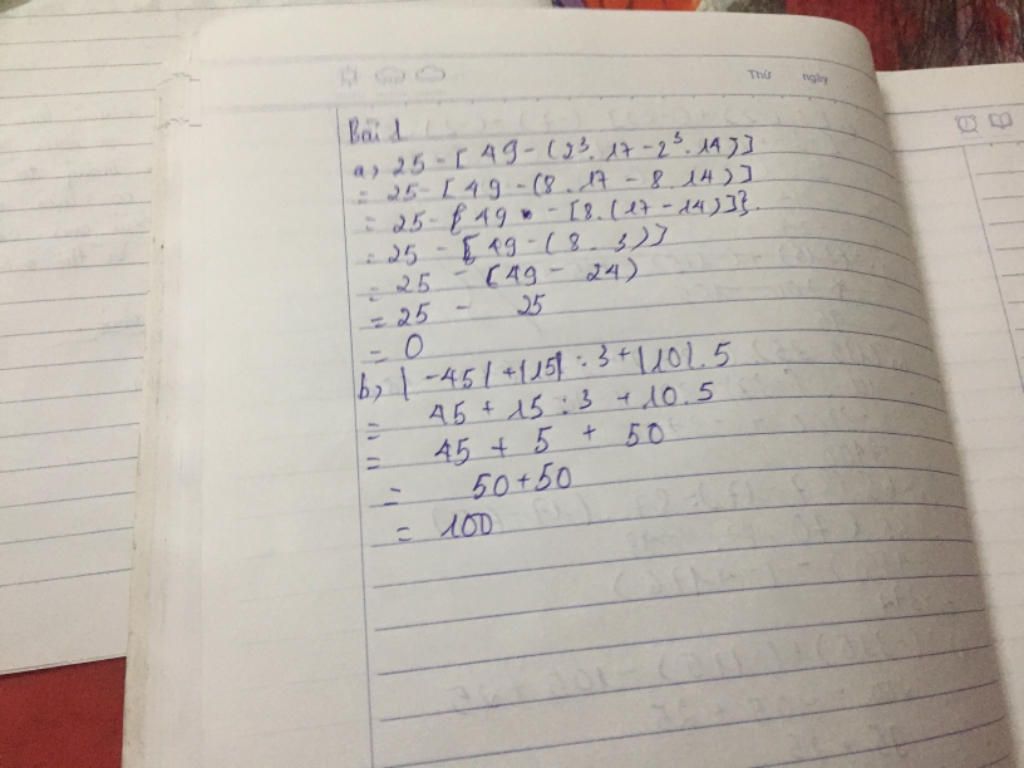 Thứ ngày
Bài 1
a) 25 - [ 49 - (2³. 17 - 2³. 14)]
= 25 - [ 49 - (8 . 17 - 8 . 14)]
= 25 - { 49 - [8.(17 - 14)]}.
= 25 - [ 49 - ( 8 . 3)]
= 25 - (49 - 24)
= 25 - 25
= 0
b) | -45| + |15| : 3 + |10|. 5
= 45 + 15 : 3 + 10. 5
= 45 + 5 + 50
= 50 + 50
= 100